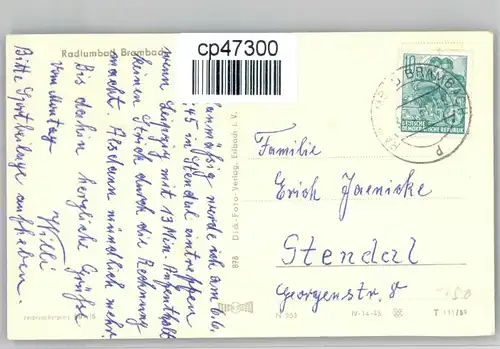 Radiumbad Brambach
cp47300
anmäßig werde ich am 6.6.
:45 in Stendal eintreffen
wenn Leipzig mit 13 Min. Aufenthalt
keinen Strich durch die Rechnung
macht. Alsdann mündlich mehr.
Bis dahin herzliche Grüße
Willi
vom Montag
Bitte Sportbeilage aufheben.
878 Dick-Foto-Verlag, Erlbach i. V.
10
DEUTSCHE
DEMOKRATISCHE REPUBLIK
BRAMBACH
Familie
Erich Jaenicke
Stendal
Georgenstr. 8
IV-14-45